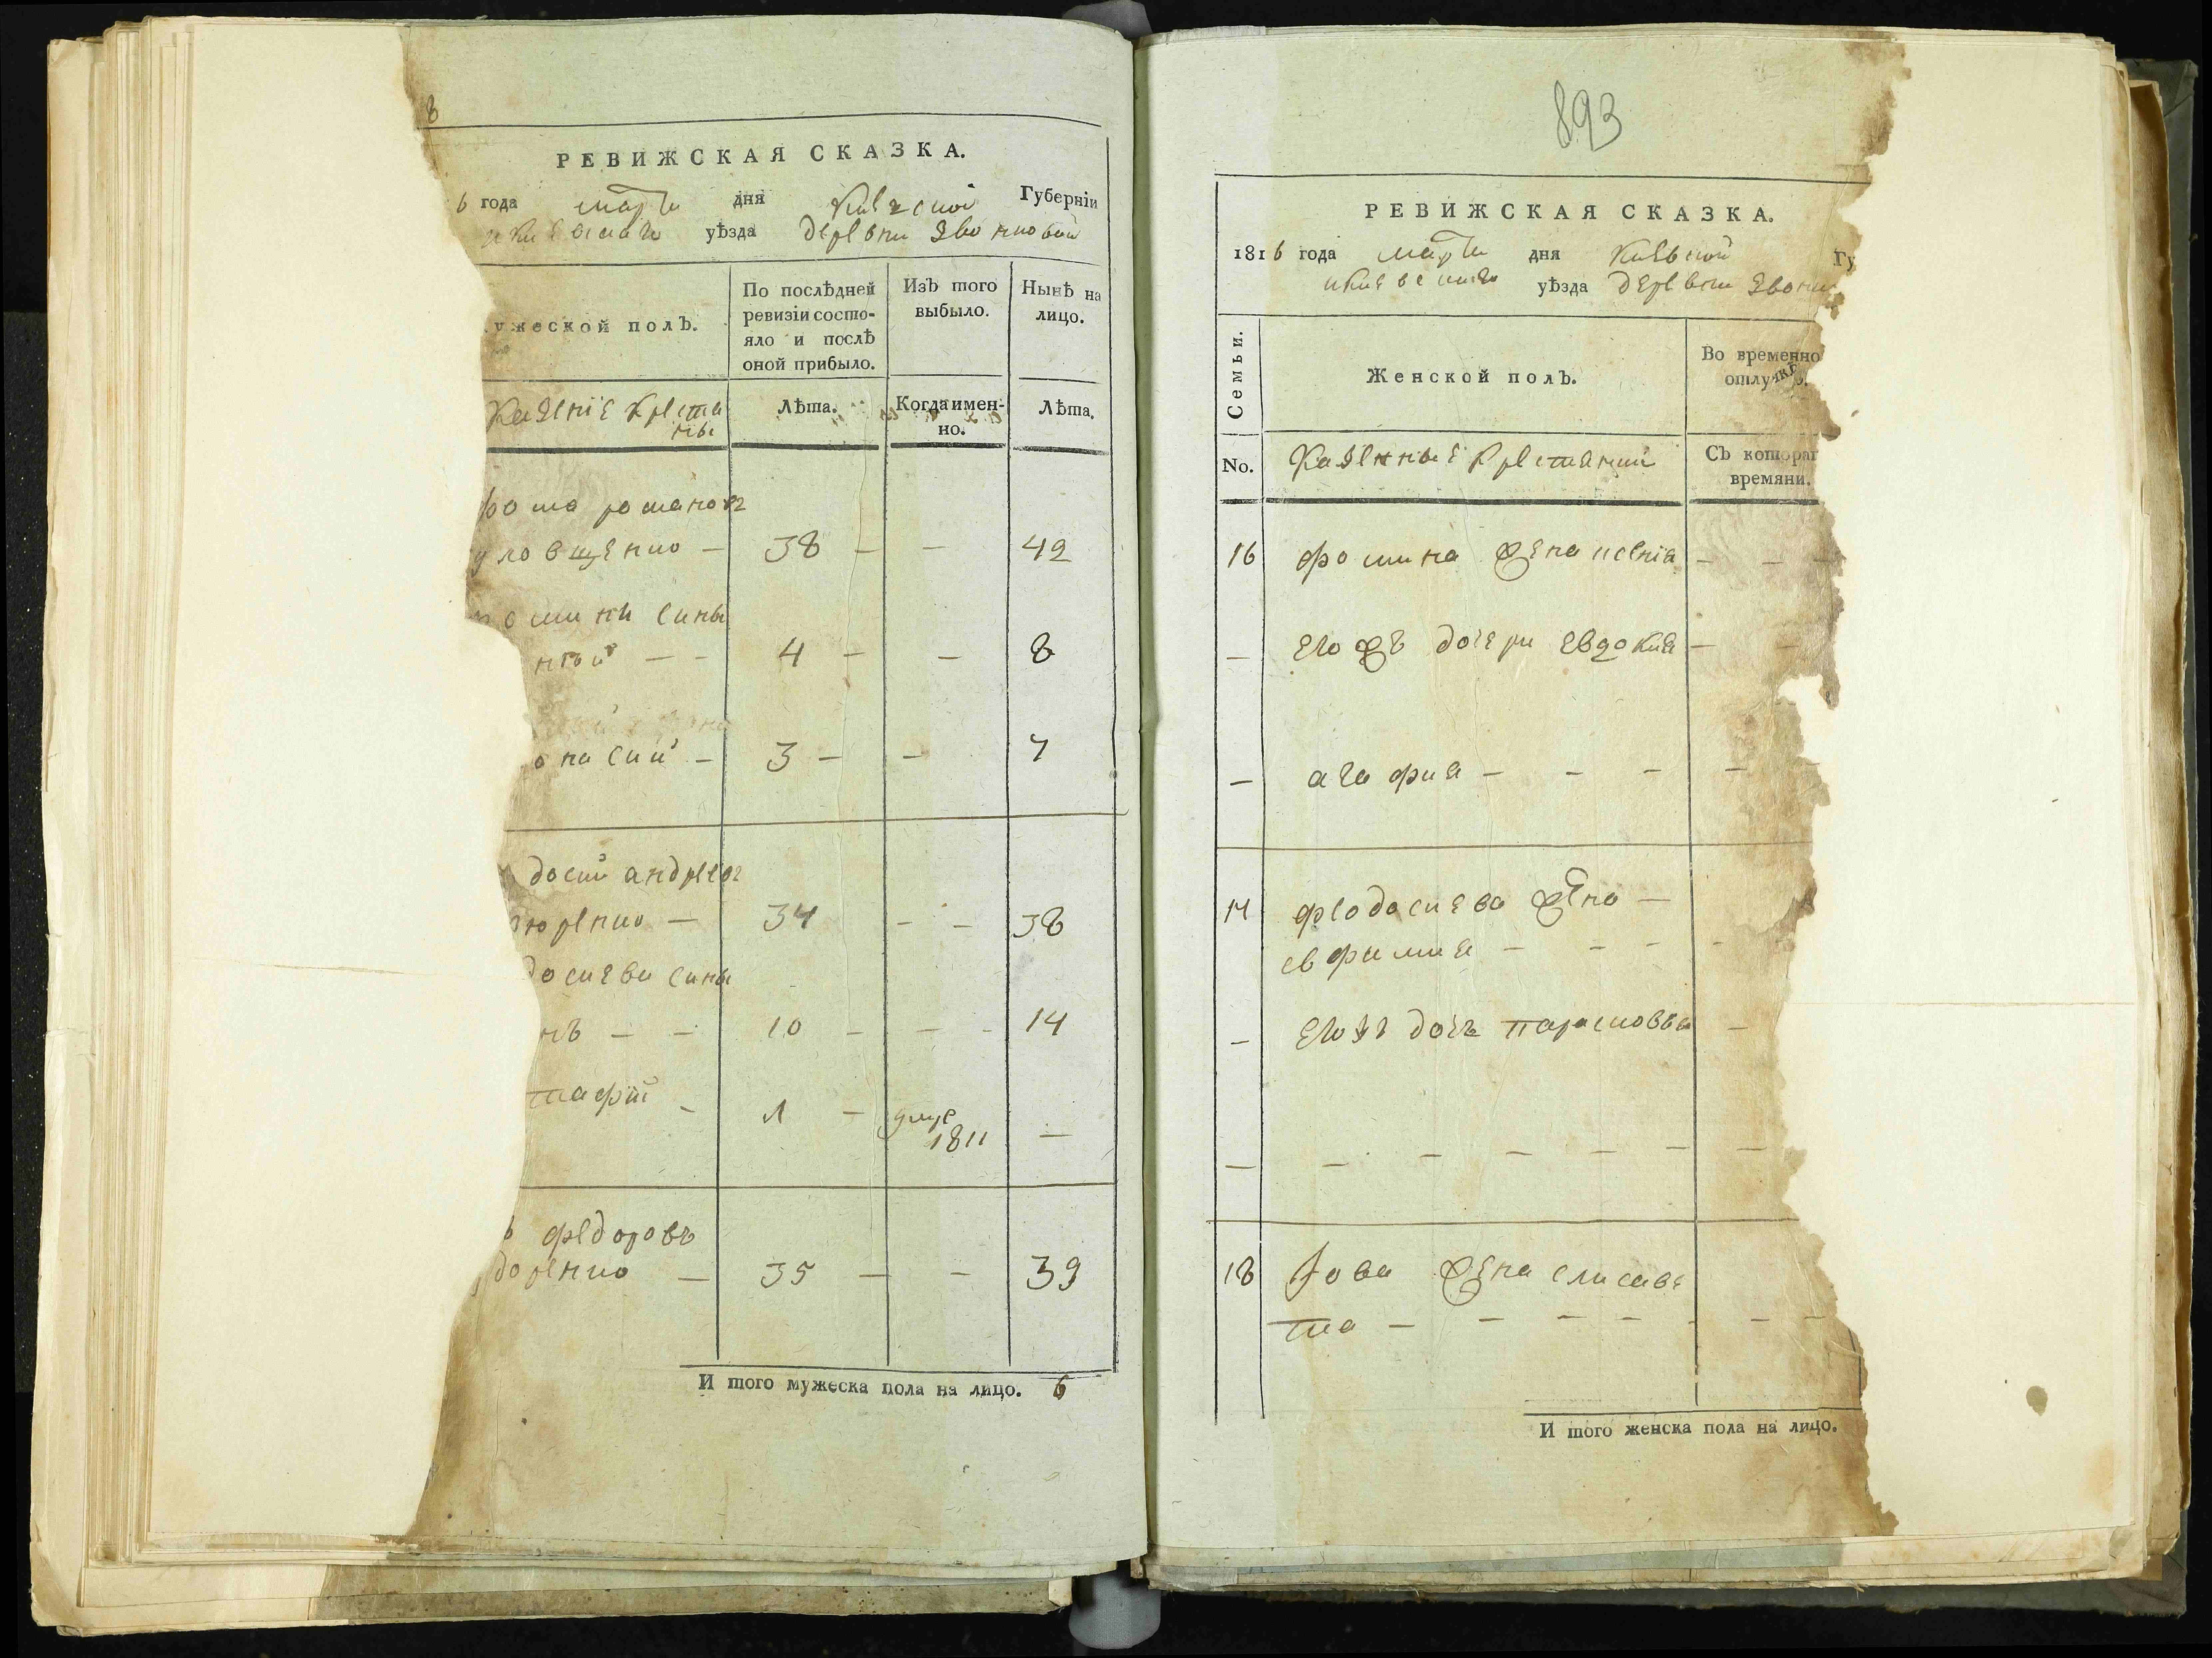 8
РЕВИЖСКАЯ СКАЗКА.
6 года марта дня Киевской Губерніи
уѣзда деревни Звонковой
ужеской полЪ.
По послѣдней
ревизіи состо-
яло и послѣ
оной прибыло.
ИзЪ того
выбыло.
НынѣЪ на
лицо.
Казеніе крестя
ны
Лѣта.
Когда имен-
но.
Лѣта.
фома романовъ
ловщенко — 38 — — 42
омини сины
нтій — — 4 — — 8
онасий — 3 — — 7
досий андреевъ
юренко — 34 — — 38
досиева сины
нъ — — 10 — — — 14
тафій — 1 — умре
1811 —
ъ федоровъ
доренко — 35 — — 39
И того мужеска пола на лицо. 6
893
РЕВИЖСКАЯ СКАЗКА.
1816 года марта дня Киевской Гу
уѣзда деревни Звонк
Семьи.
Женской полЪ.
Во временно
отлучкѣ.
No.
Казенные крестянки
СЪ котораг
времяни.
16 фомина жена ксенія — — —
— егожъ дочери евдокия — —
— агафия — — — —
17 феодосиева жена —
евфимия — — — — —
— егожъ дочъ парасковья —
— — — — — — —
18 Іова жена елисаве
та — — — — — — —
И того женска пола на лицо.